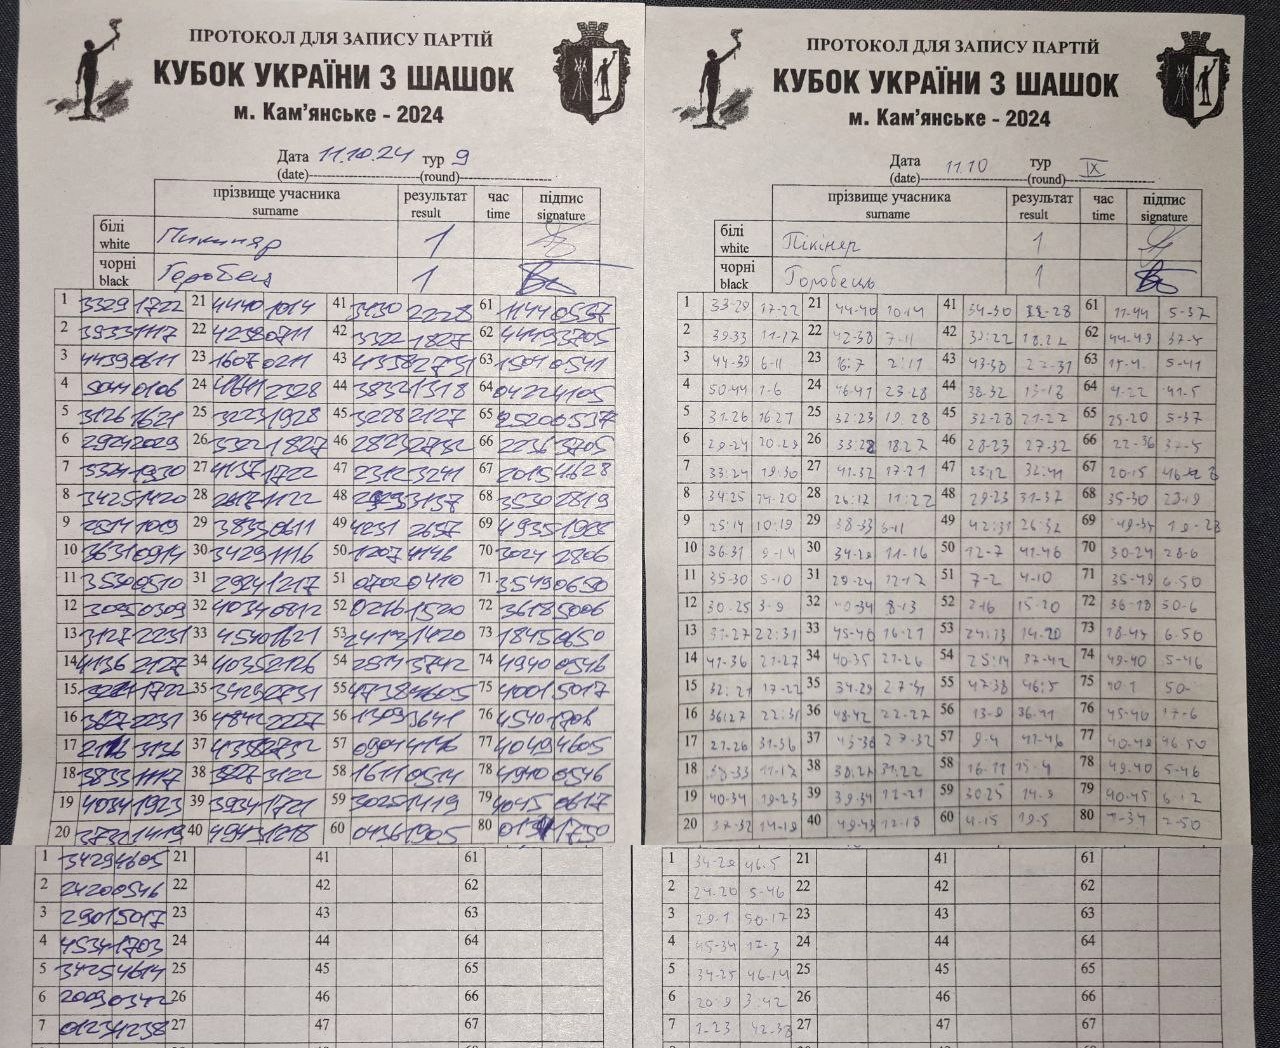 ПРОТОКОЛ ДЛЯ ЗАПИСУ ПАРТІЙ
КУБОК УКРАЇНИ З ШАШОК
м. Кам'янське - 2024
Дата 11.10.24 тур 9
(date) (round)
прізвище учасника результат час підпис
surname result time signature
білі
white Пикиняр 1
чорні
black Горобец 1
1 3329 1722 21 4440 1014 41 3430 2228 61 1144 0537
2 3933 1117 22 4238 0711 42 3322 1827 62 4449 3705
3 4439 0611 23 1607 0211 43 4338 2731 63 1504 0541
4 5044 0106 24 4641 2328 44 3832 1318 64 0422 4105
5 3126 1621 25 3223 1928 45 3228 2127 65 2520 0537
6 2924 2029 26 3322 1827 46 2823 2732 66 2236 3705
7 3324 1930 27 4137 1722 47 2312 3241 67 2015 4628
8 3425 1420 28 2617 1122 48 2923 3137 68 3530 2819
9 2514 1019 29 3833 0611 49 4231 2637 69 4935 1928
10 3631 0914 30 3429 1116 50 1207 4146 70 3024 2806
11 3530 0510 31 2924 1217 51 0702 0410 71 3549 0650
12 3025 0309 32 4034 0812 52 0216 1520 72 3618 5006
13 3127 2231 33 4540 1621 53 2413 1420 73 1845 0650
14 4136 2127 34 4035 2126 54 2514 3742 74 4940 0546
15 1722 35 3429 2731 55 4738 4605 75 4001 5017
16 3627 2231 36 4842 2227 56 1309 3641 76 4540 1706
17 2126 3136 37 4338 2732 57 0904 4146 77 4049 4605
18 3833 1117 38 3827 3122 58 1611 0514 78 4940 0546
19 4034 1923 39 3934 1721 59 3025 1419 79 4045 0617
20 3732 1419 40 4943 1218 60 0436 1905 80 0134 1750
1 3429 4605 21 41 61
2 2420 0546 22 42 62
3 2901 5017 23 43 63
4 4534 1703 24 44 64
5 3425 4614 25 45 65
6 2009 0342 26 46 66
7 0123 4238 27 47 67
ПРОТОКОЛ ДЛЯ ЗАПИСУ ПАРТІЙ
КУБОК УКРАЇНИ З ШАШОК
м. Кам'янське - 2024
Дата 11.10 тур IX
(date) (round)
прізвище учасника результат час підпис
surname result time signature
білі
white Пікінер 1
чорні
black Горобець 1
1 33-29 17-22 21 44-40 10-14 41 34-30 22-28 61 11-44 5-37
2 39-33 11-17 22 42-38 7-11 42 33:22 18:27 62 44-49 37-5
3 44-39 6-11 23 16:7 2:11 43 43-38 27-31 63 15-4 5-41
4 50-44 1-6 24 46-41 23-28 44 38-32 13-18 64 4-22 41-5
5 31-26 16-21 25 32:23 19:28 45 32-28 21-27 65 25-20 5-37
6 29-24 20:29 26 33:22 18:27 46 28-23 27-32 66 22-36 37-5
7 33:24 19:30 27 17-21 47 23:12 32:41 67 20-15
8 34:25 14-20 28 26:17 11:22 48 29-23 31-37 68 35-30 28-19
9 25:14 10:19 29 38-33 6-11 49 42:31 26:37 69 19-28
10 36-31 9-14 30 34-29 11-16 50 12-7 41-46 70 30-24 28-6
11 35-30 5-10 31 29-24 12-17 51 7-2 4-10 71 35-49 6-50
12 30-25 3-9 32 40-34 8-13 52 2-16 15-20 72 36-18 50-6
13 31-27 22:31 33 45-40 16-21 53 24:13 14-20 73 18-45 6-50
14 41-36 21-27 34 40-35 21-26 54 25:14 37-42 74 49-40 5-46
15 32:21 17-22 35 34-29 27-31 55 47:38 46:5 75 40-1 50-
16 36:27 22:31 36 48-42 22-27 56 13-9 36-41 76 45-40 17-6
17 21-26 31-36 37 43-38 27-32 57 9-4 41-46 77 40-49 46-50
18 38-33 11-17 38 38:27 31:22 58 16-11 78 49-40 5-46
19 40-34 19-23 39 39-34 17-21 59 30:25 79 40-45
20 37-32 14-19 40 49-43 12-18 60 4-15 19-5 80 1-34
1 34-29 46-5 21 41 61
2 24-20 5-46 22 42 62
3 29-1 50-17 23 43 63
4 45-34 17-3 24 44 64
5 34-25 46-14 25 45 65
6 20:9 3:42 26 46 66
7 1-23 42-38 27 47 67